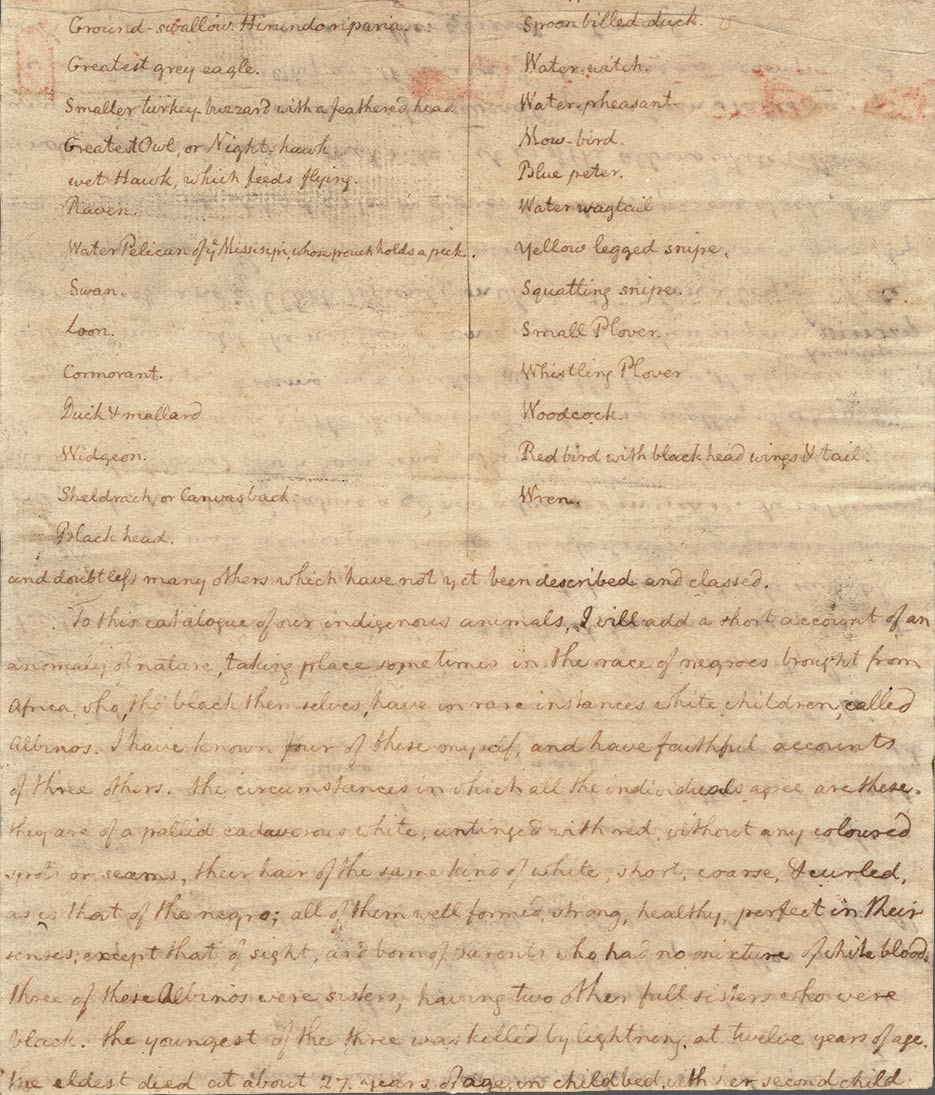 Ground-swallow. Hirundo riparia.
Greatest grey eagle.
Smaller turkey-buzzard with a feathered head
Greatest Owl, or Night-hawk
wet-Hawk, which feeds flying.
Raven.
Water Pelican of yᵉ Missisipi, whose pouch holds a peck.
Swan
Loon.
Cormorant.
Duck & mallard
Widgeon.
Sheldrach, or Canvas back.
Black head.
Spoon billed duck.
Water-witch.
Water-pheasant.
Mow-bird.
Blue peter.
Water wagtail
Yellow legged snipe.
Squatting snipe.
Small Plover
Whistling Plover
Woodcock.
Red bird with black head wings & tail.
Wren.
and doubtless many others which have not yet been described and classed.
To this catalogue of our indigenous animals, I will add a short account of an
anomaly of nature, taking place sometimes in the race of negroes brought from
Africa, who, tho' black themselves, have in rare instances white children, called
Albinos. I have known four of these myself, and have faithful accounts
of three others. the circumstances in which all the individuals agree are these.
they are of a pallid cadaverous white, untinged with red, without any coloured
spots or seams, their hair of the same kind of white, short, coarse, & curled,
as is that of the negro; all of them well formed, strong, healthy, perfect in their
senses, except that of sight, and born of parents who had no mixture of white blood.
three of these Albinos were sisters, having two other full sisters who were
black. the youngest of the three was killed by lightning, at twelve years of age.
the eldest died at about 27 years of age, in child bed, with her second child.